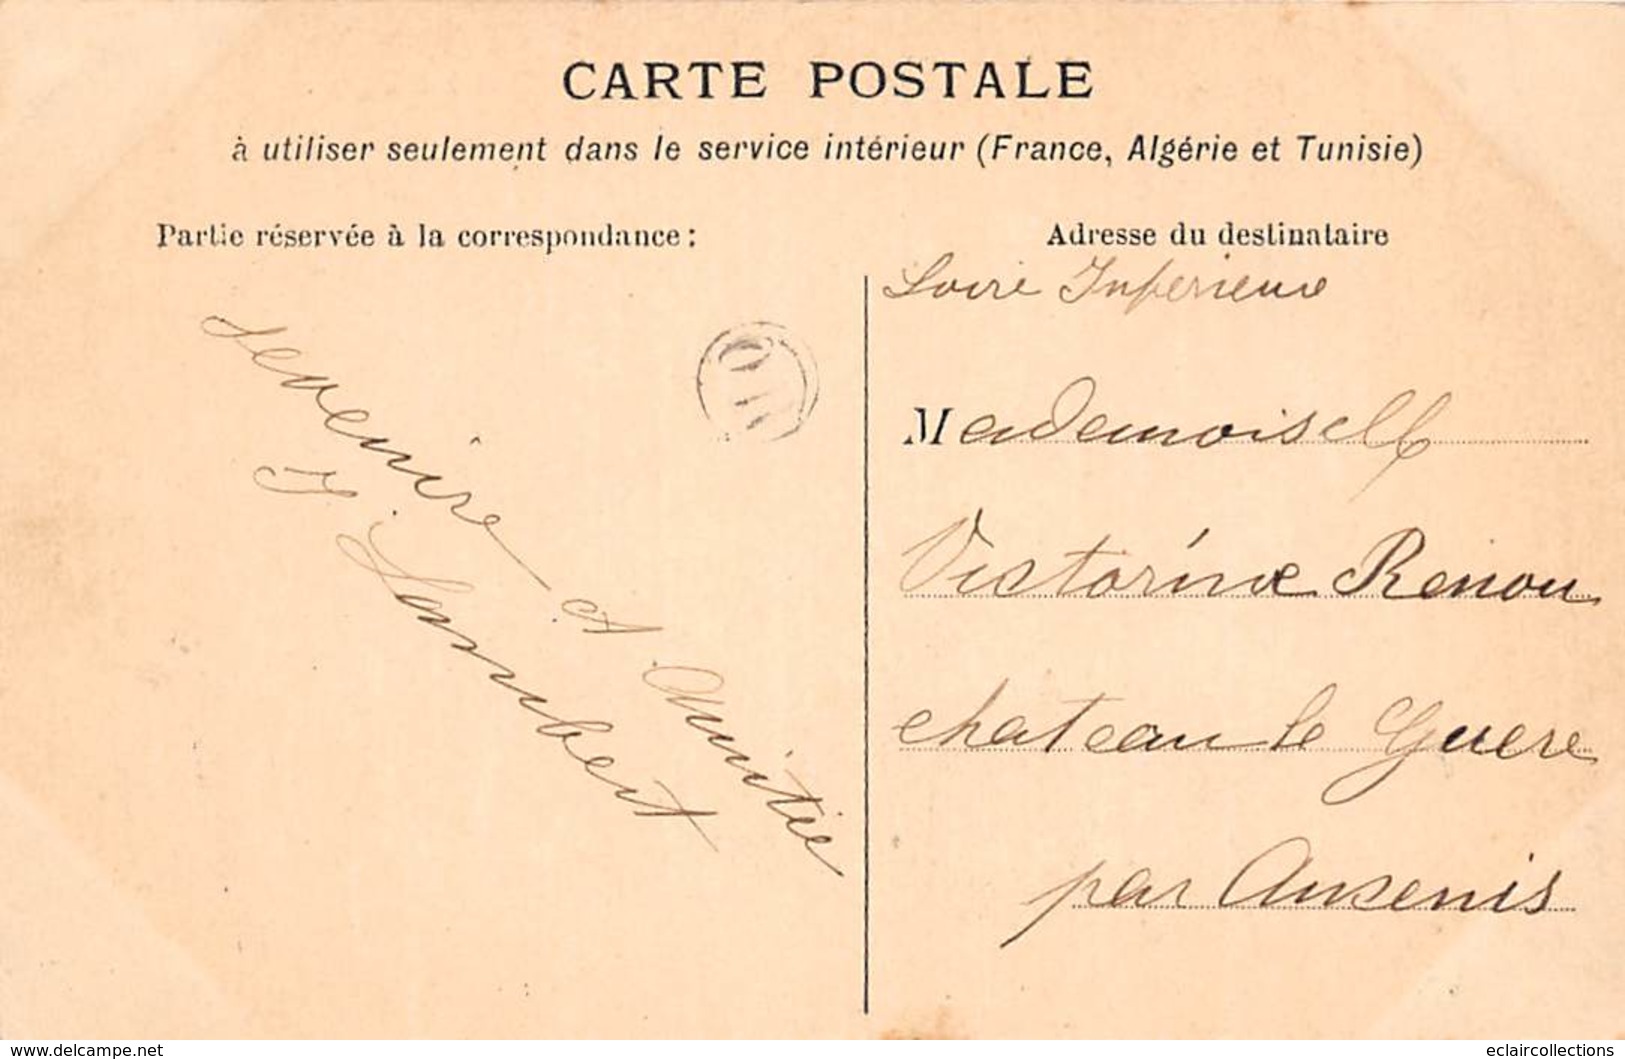 CARTE POSTALE
à utiliser seulement dans le service intérieur (France, Algérie et Tunisie)
Partie réservée à la correspondance :
Sevenire A. Amitié
J. Lambert
Adresse du destinataire
Loire Inferieure
Mademoiselle
Victorine Renou
chateau le Guere
par Ansenis
www.delcampe.net
eclaircollections